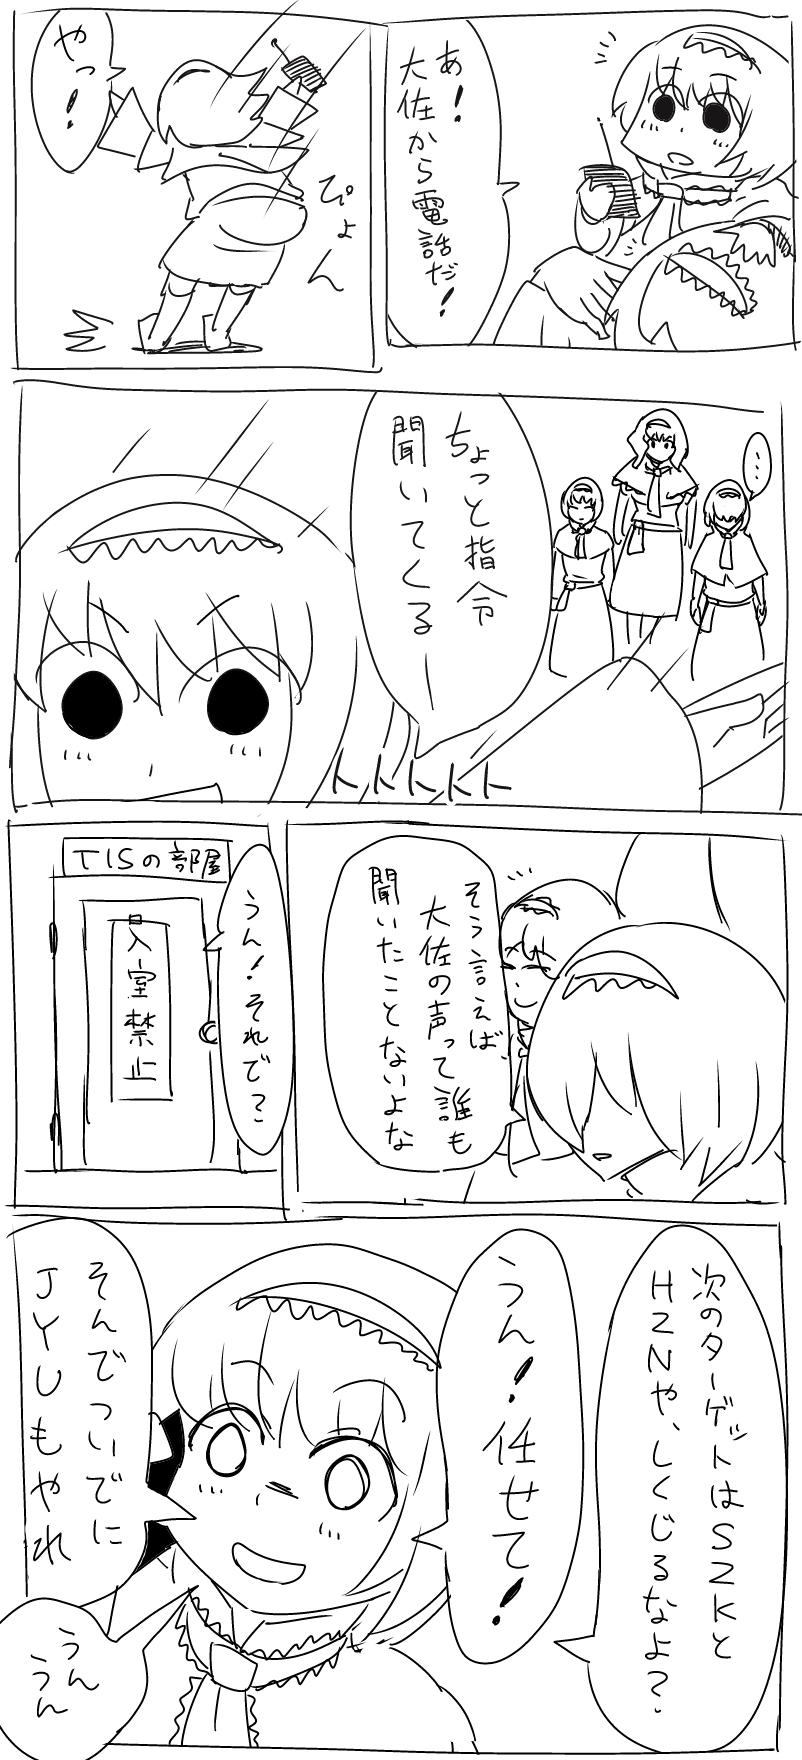 あ!
大佐から電話だ!
やっ!
ぴょん
…
ちょっと指令
聞いてくるー
トトトトト
そう言えば、
大佐の声って誰も
聞いたことないよな
TISの部屋
入室禁止
うん!それで?
次のターゲットはSZKと
HZNや、しくじるなよ?
うん!任せて!
そんでついでに
JYUもやれ
うん
うん